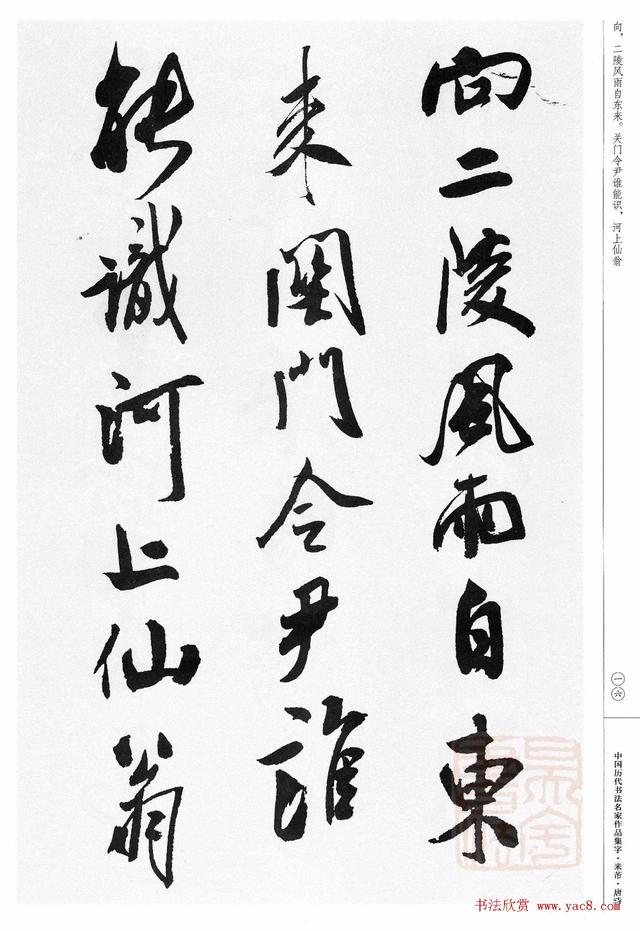 向二陵風雨自東
来関門令尹誰
能識河上仙翁
向，二陵风雨自东来。关门令尹谁能识，河上仙翁
一六
中国历代书法名家作品集字·米芾·唐诗
书法欣赏 www.yac8.com